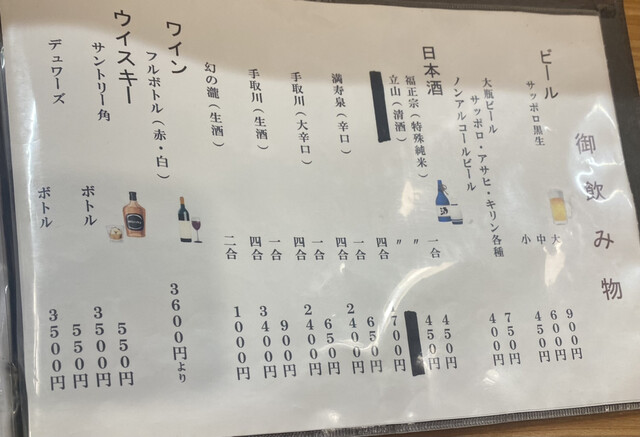 御飲み物
ビール
サッポロ黒生 大 900円
中 600円
小 450円
大瓶ビール 750円
サッポロ・アサヒ・キリン各種
ノンアルコールビール 400円
日本酒
福正宗(特殊純米) 一合 450円
立山(清酒) 〃 450円
〃
四合 1700円
満寿泉(辛口) 一合 650円
四合 2400円
手取川(大辛口) 一合 650円
四合 2400円
手取川(生酒) 一合 900円
四合 3400円
幻の瀧(生酒) 二合 1000円
ワイン
フルボトル(赤・白) 3600円より
ウイスキー
サントリー角 550円
ボトル 3500円
デュワーズ 550円
ボトル 3500円